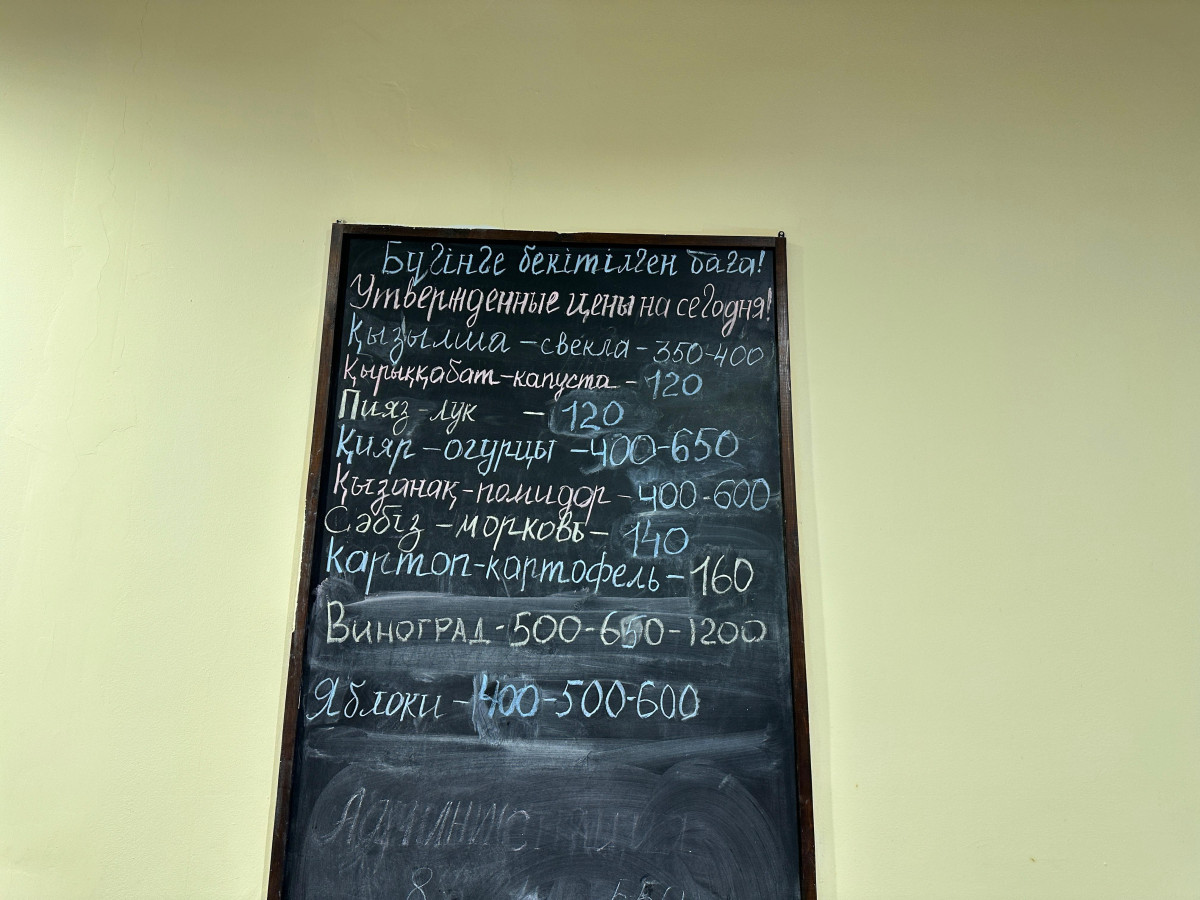 Бүгінге бекітілген баға!
Утвержденные цены на сегодня!
Қызылша - свекла - 350-400
Қырыққабат - капуста - 120
Пияз - лук - 120
Қияр - огурцы - 400-650
Қызанақ - помидор - 400-600
Сәбіз - морковь - 140
Картоп - картофель - 160
Виноград - 500-650-1200
Яблоки - 400-500-600
Администрация